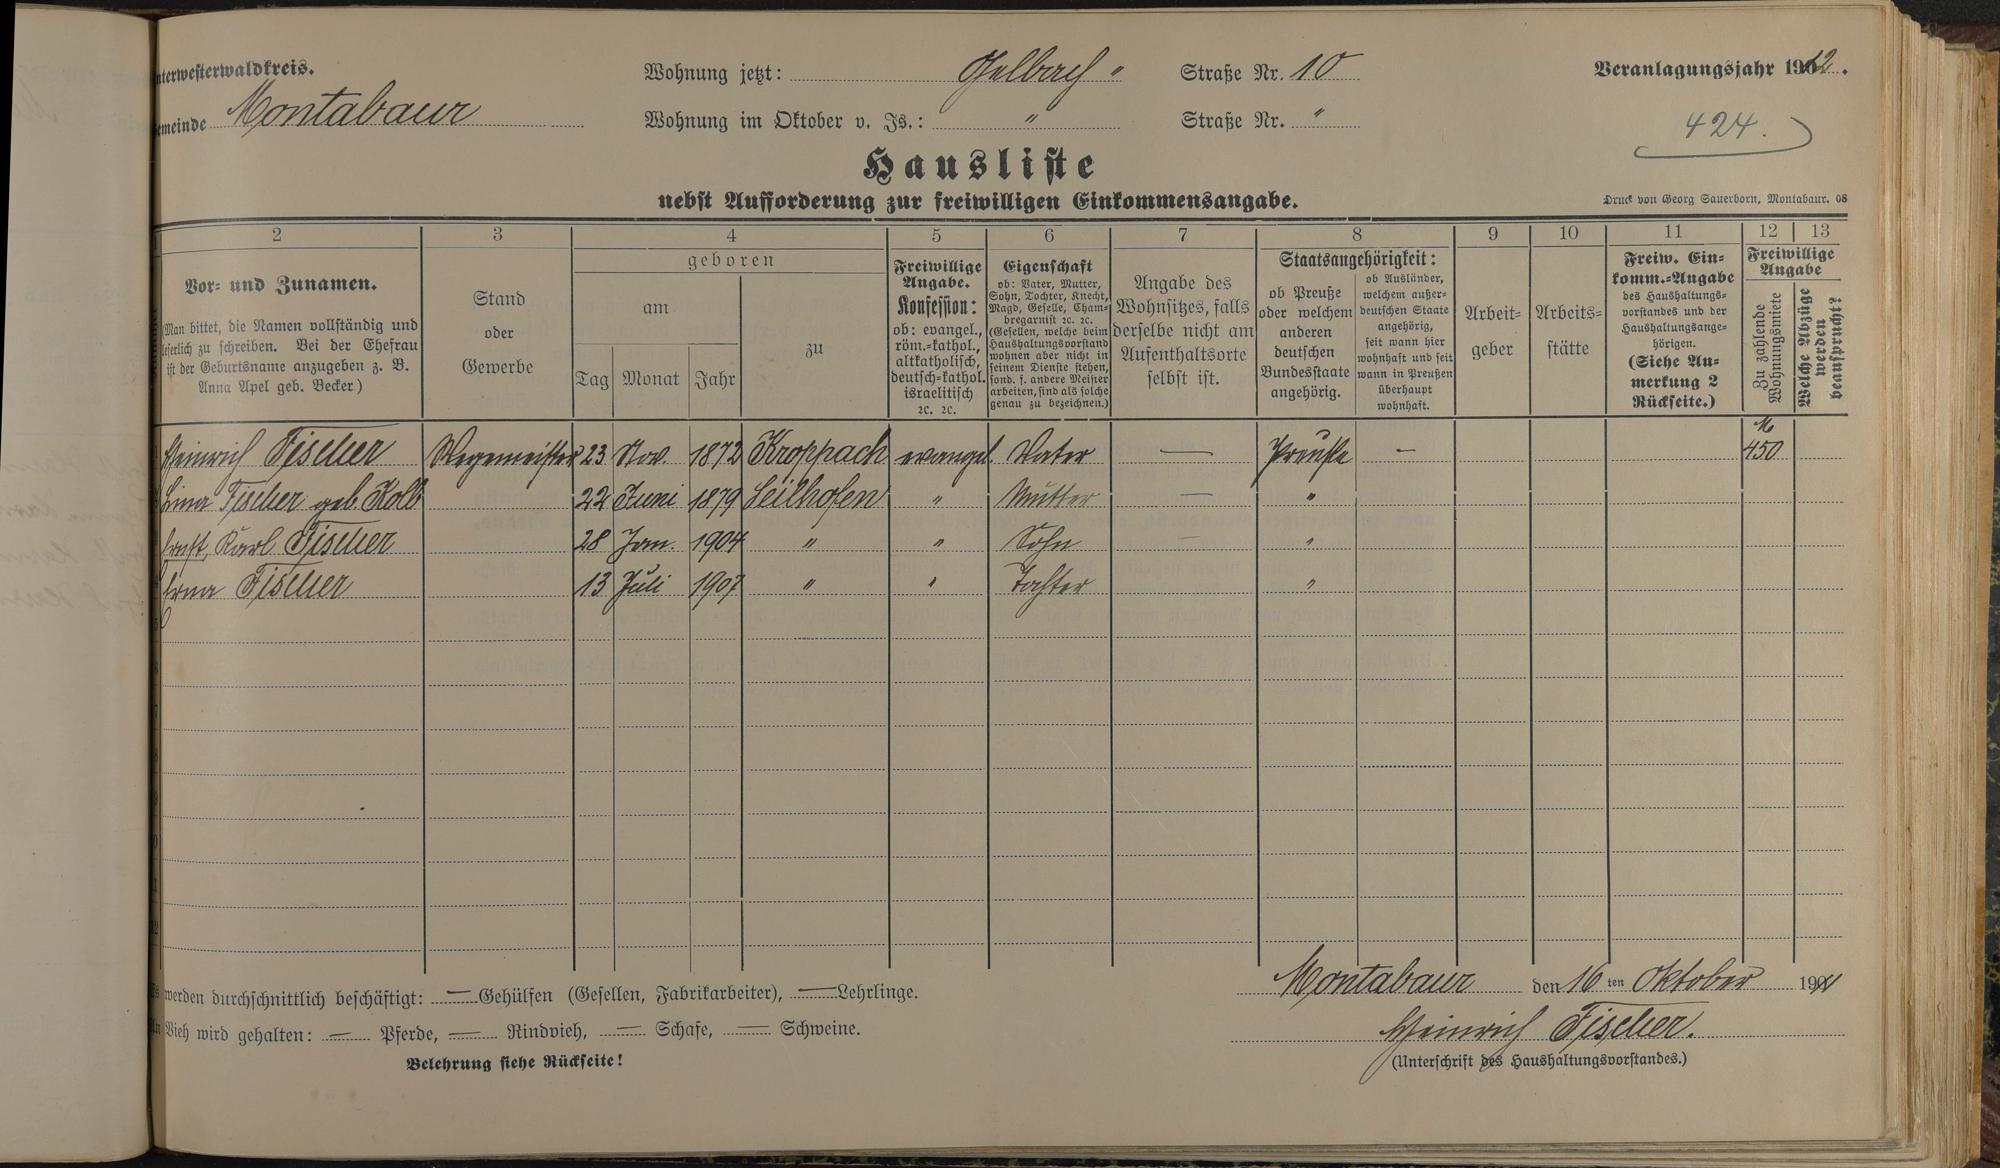 nterwesterwaldkreis.
Wohnung jetzt: Gelbach " Straße Nr. 10
Veranlagungsjahr 1912.
emeinde Montabaur
Wohnung im Oktober v. Js.: " Straße Nr. "
424.
Hausliste
nebst Aufforderung zur freiwilligen Einkommensangabe.
Druck von Georg Sauerborn, Montabaur. 08
2 3 4 5 6 7 8 9 10 11 12 13
Vor- und Zunamen.
(Man bittet, die Namen vollständig und
leserlich zu schreiben. Bei der Ehefrau
ist der Geburtsname anzugeben z. B.
Anna Apel geb. Becker.)
Stand
oder
Gewerbe
geboren
am
Tag Monat Jahr
zu
Freiwillige
Angabe.
Konfession:
ob: evangel.,
röm.-kathol.,
altkatholisch,
deutsch-kathol.
israelitisch
ꝛc. ꝛc.
Eigenschaft
ob: Vater, Mutter,
Sohn, Tochter, Knecht,
Magd, Geselle, Cham-
bregarnist ꝛc. ꝛc.
(Gesellen, welche beim
Haushaltungsvorstand
wohnen aber nicht in
seinem Dienste stehen,
sond. f. andere Meister
arbeiten, sind als solche
genau zu bezeichnen.)
Angabe des
Wohnsitzes, falls
derselbe nicht am
Aufenthaltsorte
selbst ist.
Staatsangehörigkeit:
ob Preuße
oder welchem
anderen
deutschen
Bundesstaate
angehörig.
ob Ausländer,
welchem außer-
deutschen Staate
angehörig,
seit wann hier
wohnhaft und seit
wann in Preußen
überhaupt
wohnhaft.
Arbeit-
geber
Arbeits-
stätte
Freiw. Ein-
komm.-Angabe
des Haushaltungs-
vorstandes und der
Haushaltungsange-
hörigen.
(Siehe An-
merkung 2
Rückseite.)
Freiwillige
Angabe
Zu zahlende
Wohnungsmiete
Welche Abzüge
werden
beansprucht?
M
Heinrich Fischer Wegemeister 23 Nov. 1872 Kroppach evangel. Vater — Preuße — 450
Lina Fischer geb. Kolb 22 Juni 1879 Seilhofen " Mutter — "
Ernst, Karl Fischer 28 Jan. 1904 " " Sohn — "
Erna Fischer 13 Juli 1907 " " Tochter "
Montabaur den 16ten Oktober 1911
werden durchschnittlich beschäftigt: — Gehülfen (Gesellen, Fabrikarbeiter), — Lehrlinge.
Vieh wird gehalten: — Pferde, — Rindvieh, — Schafe, — Schweine.
Heinrich Fischer.
Belehrung siehe Rückseite!
(Unterschrift des Haushaltungsvorstandes.)